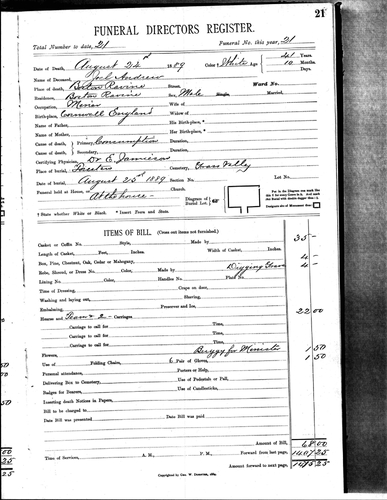 21
FUNERAL DIRECTORS REGISTER.
Total Number to date, 21 Funeral No. this year, 21
Date of Death, August 24 1889 Color † White Age 41 Years.
10 Months.
Days.
Name of Deceased, Joel Andrew
Place of death, Boston Ravine Street. Ward No.
Residence, Boston Ravine Sex, Male Single. Married,
Occupation, Miner Wife of
Birth-place, Cornwall England Widow of
Name of Father, His Birth-place, *
Name of Mother, Her Birth-place, *
Cause of death, Primary, Consumption Duration,
Cause of death, Secondary, Duration,
Certifying Physician, Dr E. Jamieson Residence,
Place of burial, Cemetery, Grass Valley
Date of burial, August 25 1889 Section No. Lot No.
Funeral held at House, or Church. At the house
Diagram of Burial Lot.
Put in the Diagram one mark thus X for every Grave in it. And mark the Burial with double dagger thus ‡.
Designate site of Monument thus
† State whether White or Black. * Insert Town and State.
ITEMS OF BILL. (Cross out items not furnished.)
Casket or Coffin No. Style, Made by 35 -
Length of Casket, Feet, Inches. Width of Casket, Inches.
Box, Pine, Chestnut, Oak, Cedar or Mahogany, 4 -
Robe, Shroud, or Dress No. Color, Made by Digging Grave 4 -
Lining No. Color, Handles No. Plate No.
Time of Dressing, Crape on door,
Washing and laying out, Shaving,
Embalming, Preserver and Ice,
Hearse and Team & 2 - Carriages 22 00
Carriages to call for Time,
Carriage to call for Time,
Carriage to call for Time,
Carriage to call for Time,
Flowers, Buggy for Minister 1 50
Use of Folding Chairs, 6 Pair of Gloves, 1 50
Personal attendance, Porters or Help,
Delivering Box to Cemetery, Use of Pedestals or Pall,
Badges for Bearers, Use of Candlesticks,
Inserting death Notices in Papers,
Bill to be charged to
Date Bill was presented Date Bill was paid
Amount of Bill, 68 00
Time of Services, A. M., P. M. Forward from last page, 1407 25
Amount forward to next page, 1475 25